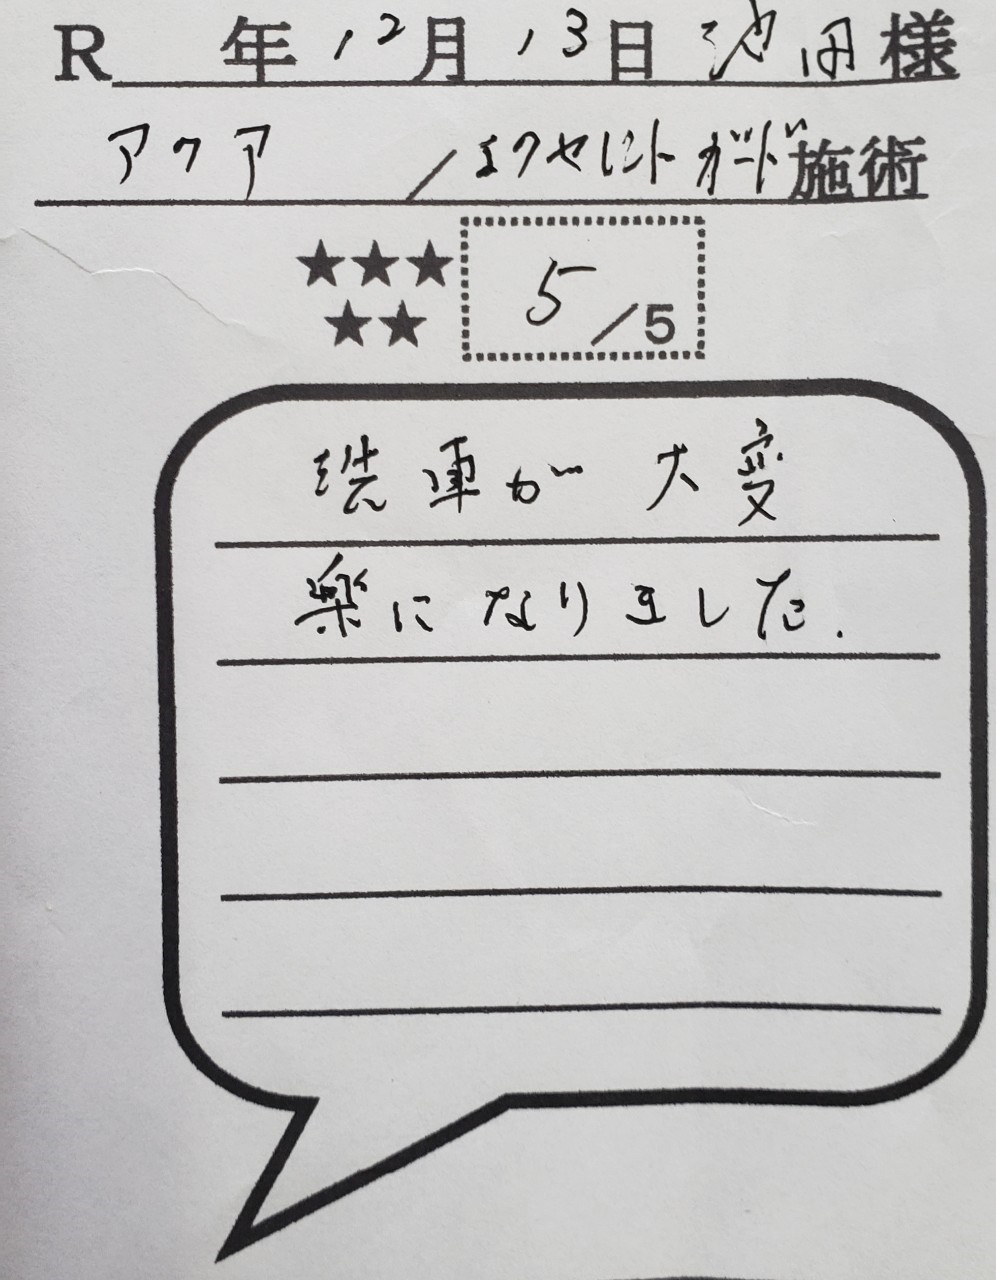 R 年12月13日 池田様
アクア / エクセレントガード施術
★★★
★★
5/5
洗車が大変
楽になりました.